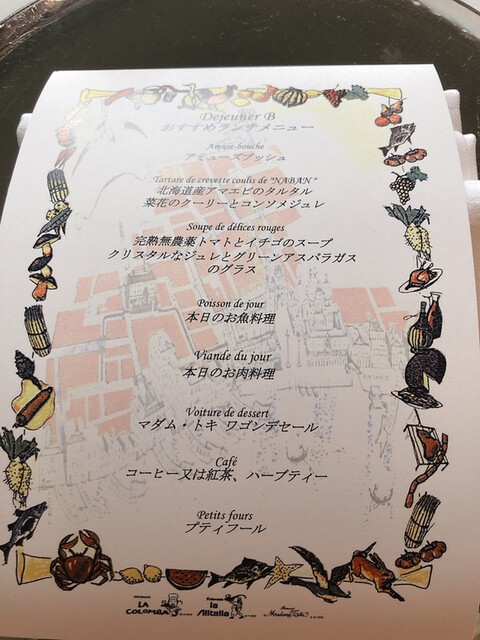 Dejeuner B
おすすめランチメニュー
Amuse-bouche
アミューズブッシュ
Tartare de crevette coulis de "NABAN"
北海道産アマエビのタルタル
菜花のクーリーとコンソメジュレ
Soupe de délices rouges
完熟無農薬トマトとイチゴのスープ
クリスタルなジュレとグリーンアスパラガス
のグラス
Poisson de jour
本日のお魚料理
Viande du jour
本日のお肉料理
Voiture de dessert
マダム・トキ ワゴンデセール
Café
コーヒー又は紅茶、ハーブティー
Petits fours
プティフール
LA
COLOMBA
la
Alitalia